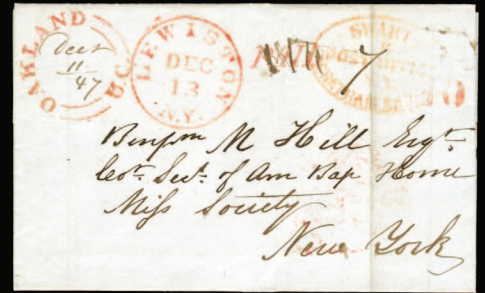 OAKLAND U.C.
Decr
11
/47
LEWISTON
DEC
13
N.Y.
PAID
7
SWART
POST OFFICE
Benjm M Hill Esqr.
Cor. Sec. of Am Bap Home
Miss Society
New York